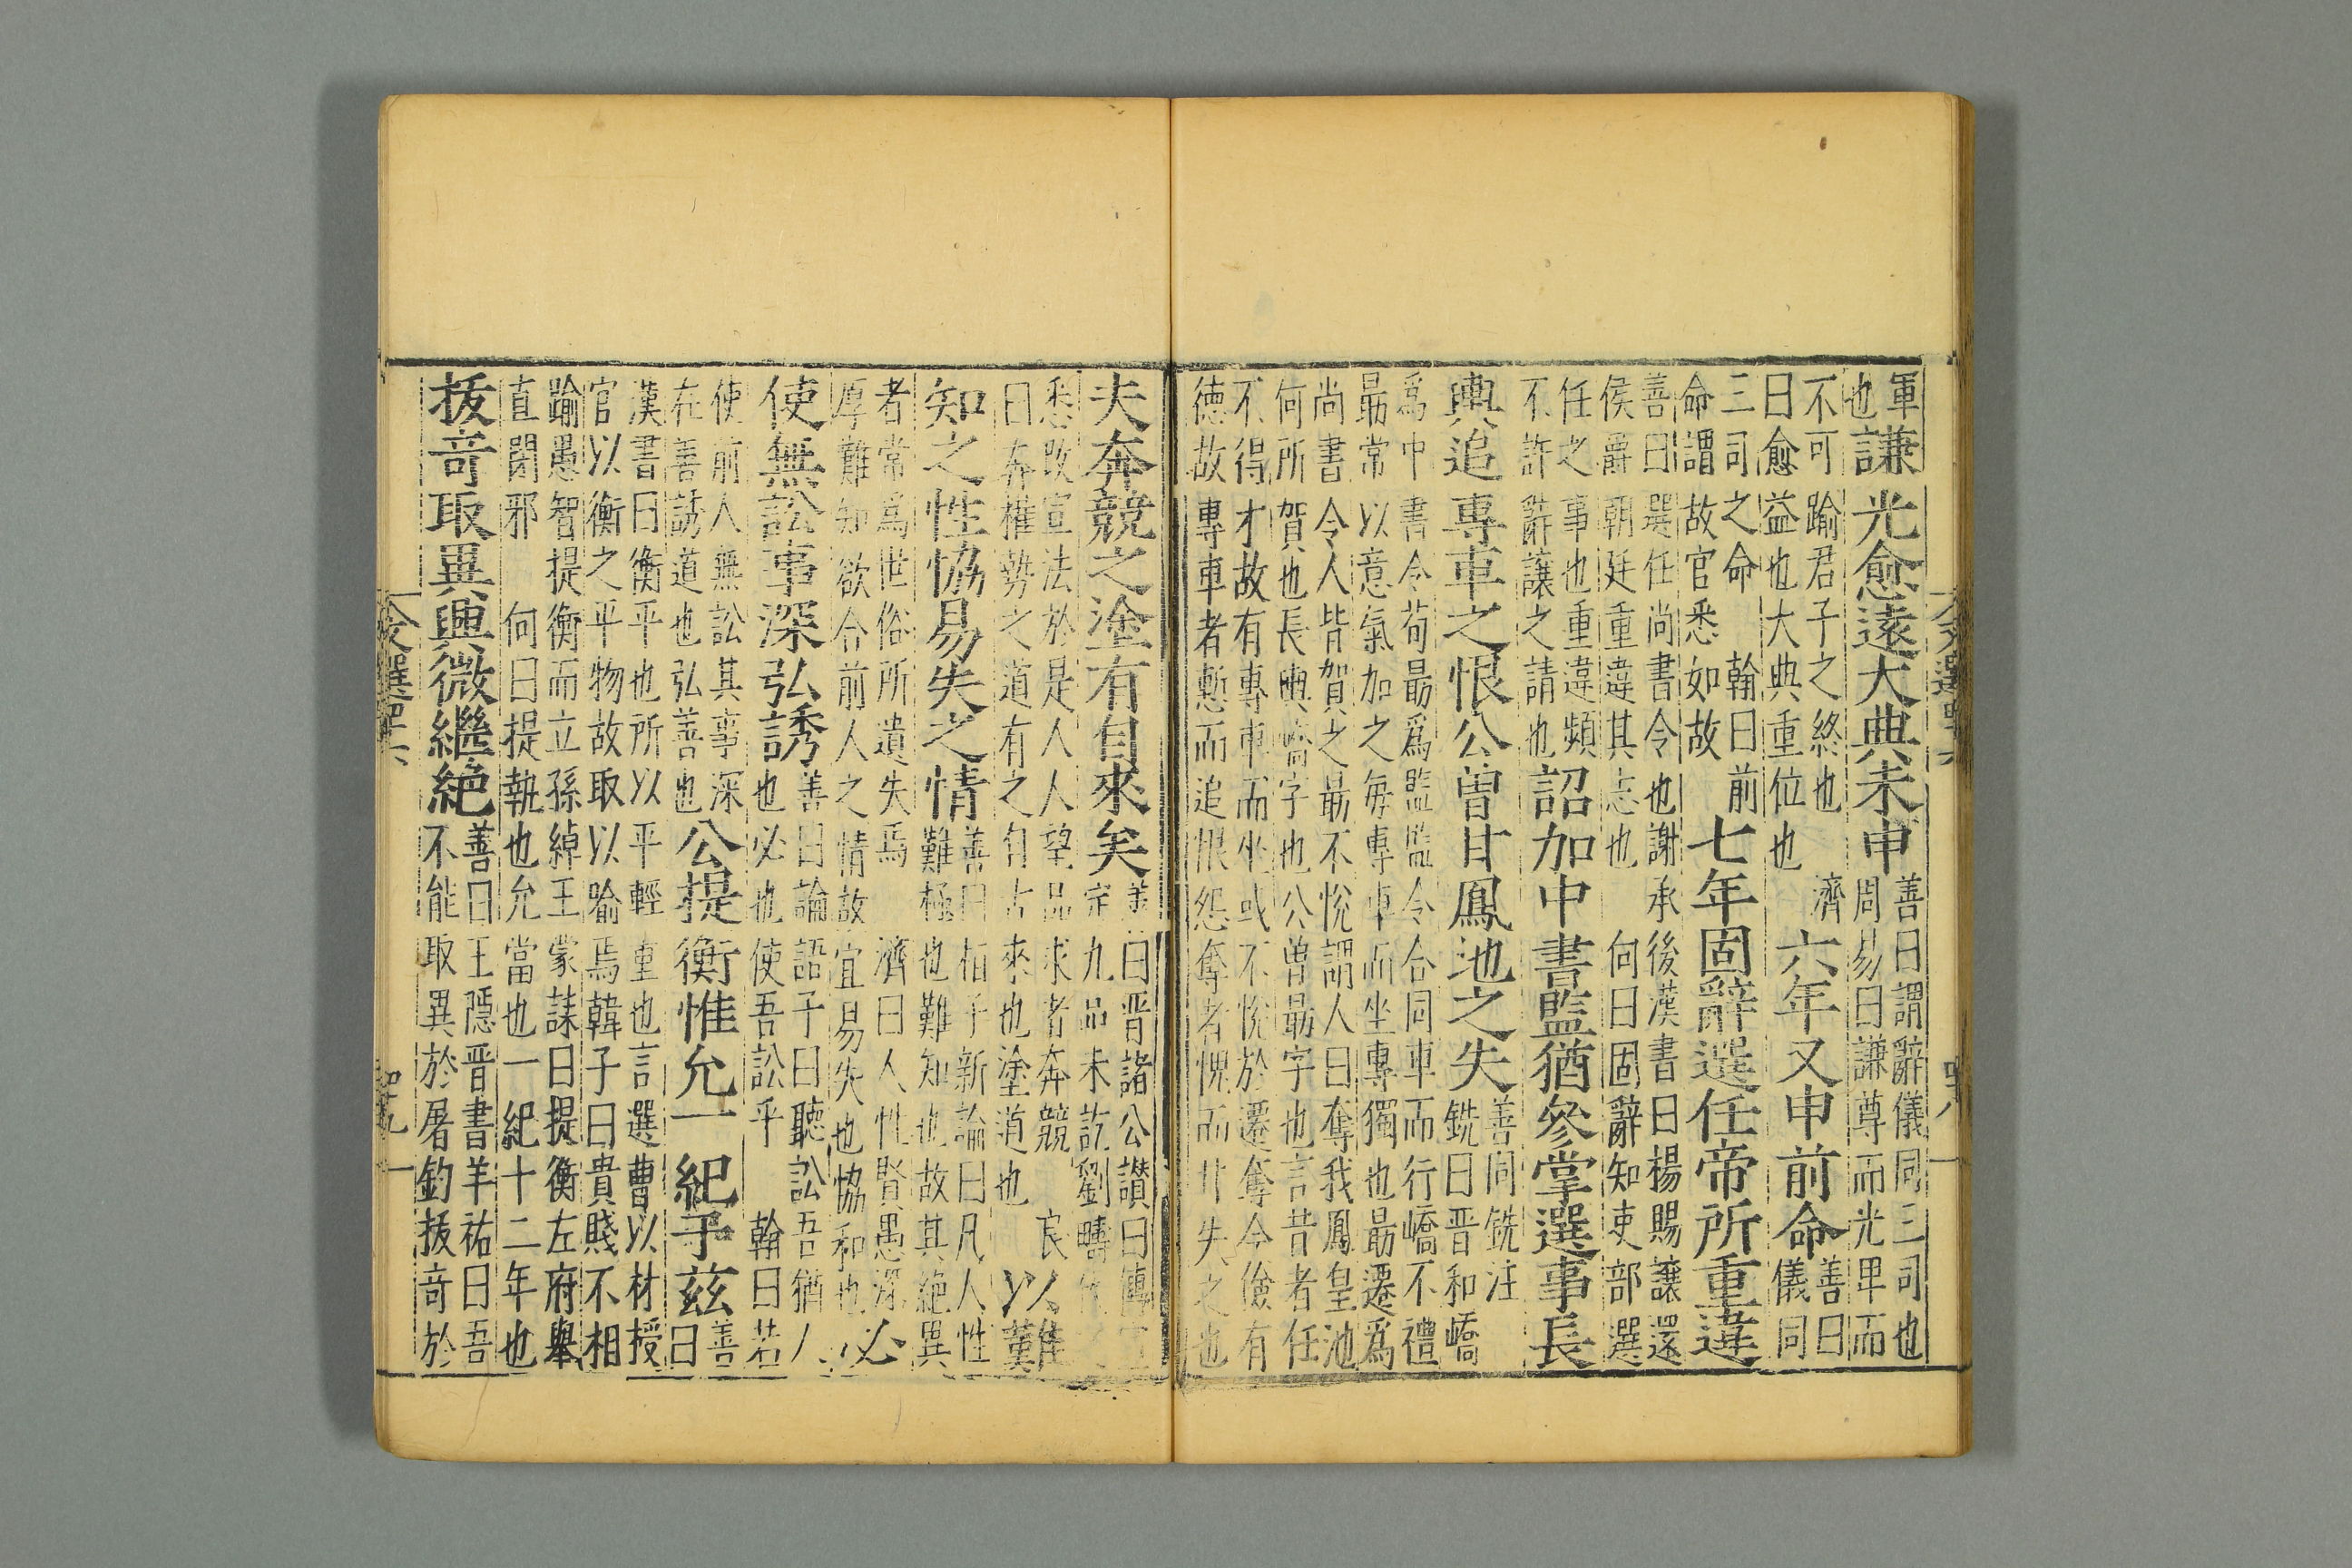 軍
也
謙光愈遠大典未申
善曰謂辭儀同三司也
周易曰謙尊而光卑而
不可踰君子之終也 濟
曰愈益也大典重位也
六年又申前命
善曰
儀同
三司之命 翰曰前
命謂故官悉如故
七年固辭選任帝所重違
善曰選任尚書令也謝承後漢書曰楊賜讓還
侯爵朝廷重違其志也 向曰固辭知吏部選
任之事也重違頻
不許辭讓之請也
詔加中書監猶參掌選事長
輿追專車之恨公曾甘鳳池之失
善同銑注
銑曰晉和嶠
爲中書令荀勗爲監監令合同車而行嶠不禮
勗常以意氣加之每專車而坐專獨也勗遷爲
尚書令人皆賀之勗不悅謂人曰奪我鳳皇池
何所賀也長輿嶠字也公曾勗字也言昔者任
不得才故有專車而坐或不悅於遷奪今儉有
德故專車者慙而追恨怨奪者愧而甘失之也
夫奔競之塗有自來矣
善曰晉諸公讃曰傅宣
定九品未訖劉疇代之
悉改宣法於是人人望品求者奔競 良
曰奔權勢之道有之自古來也塗道也
以
知之性協易失之情
善曰桓子新論曰凡人性
難極也難知也故其絶異
者常爲世俗所遺失焉 濟曰人性賢愚深
厚難知欲合前人之情故宜易失也協和也
必
使無訟事深弘誘
善曰論語子曰聽訟吾猶人
也必也使吾訟乎 翰曰若
使前人無訟其事深
在善誘道也弘善也
公提衡惟允一紀于兹
善
曰
漢書曰衡平也所以平輕重也言選曹以材授
官以衡之平物故取以喻焉韓子曰貴賤不相
踰愚智提衡而立孫綽王蒙誄曰提衡左府舉
直閑邪 向曰提執也允當也一紀十二年也
拔奇取異興微繼絶
善曰王隱晉書羊祜曰吾
不能取異於屠釣拔奇於
文選四十六
四十九